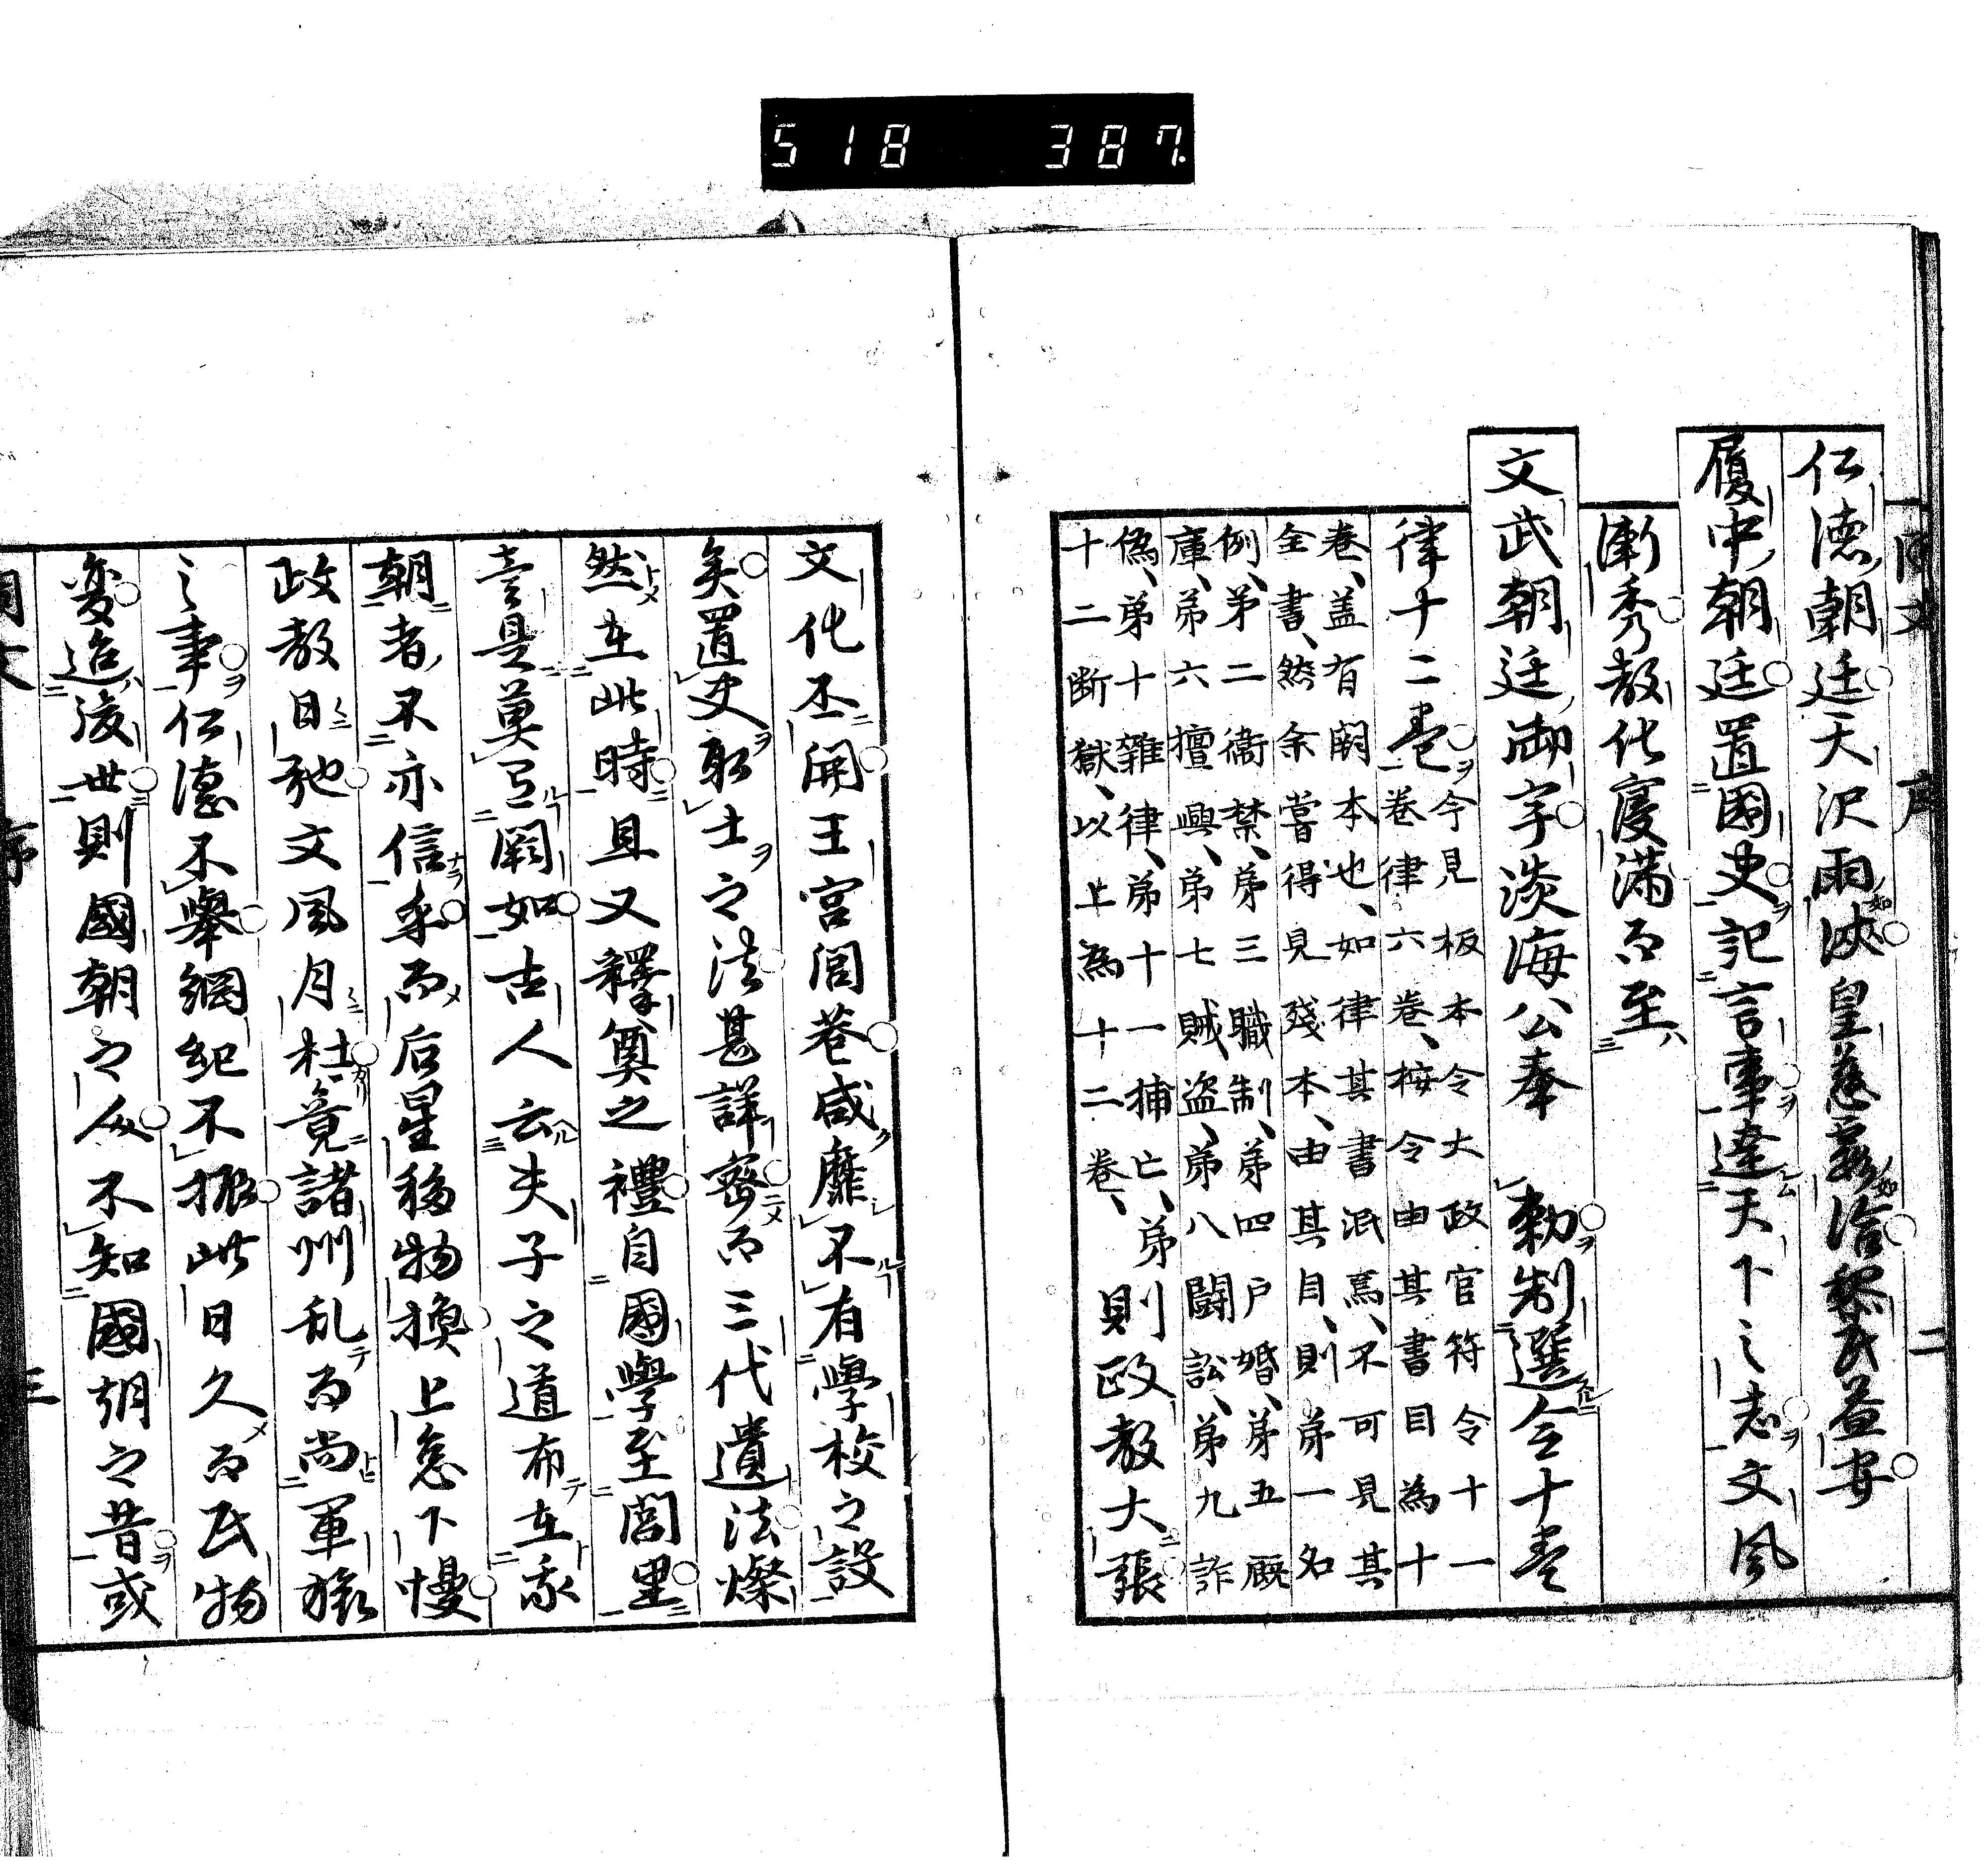 518 387
序 二
仁德朝廷天沢雨浹皇慈霧洽黎民益安
履中朝廷置國史記言事達天下之志文風
漸秀教化寖満而至
文武朝廷御宇淡海公奉 勅制選令十巻
律十二巻今見板本令大政官符令十一
卷律六卷、桉令由其書目為十
卷、盖有闕本也、如律其書泯焉、不可見其
全書、然余嘗得見殘本、由其目、則弟一名
例、弟二衞禁、弟三職制、弟四戸婚、弟五厩
庫、弟六擅興、弟七賊盗、弟八鬪訟、弟九詐
偽、弟十雜律、弟十一捕亡、弟
十二断獄、以上為十二卷、則政教大張
文化丕開王宮閭巷咸靡不有學校之設
矣置吏取士之法甚詳密而三代遺法燦
然在此時且又釋奠之禮自國學至閭里
莫豆闕如古人云夫子之道布在我
朝者不亦信乎而后星移物換上怠下慢
政教日弛文風月杜竟諸州乱而尚軍旅
之事仁德不舉綱紀不振此日久而民物
変迨後世則國朝之人不知國朝之昔或
三